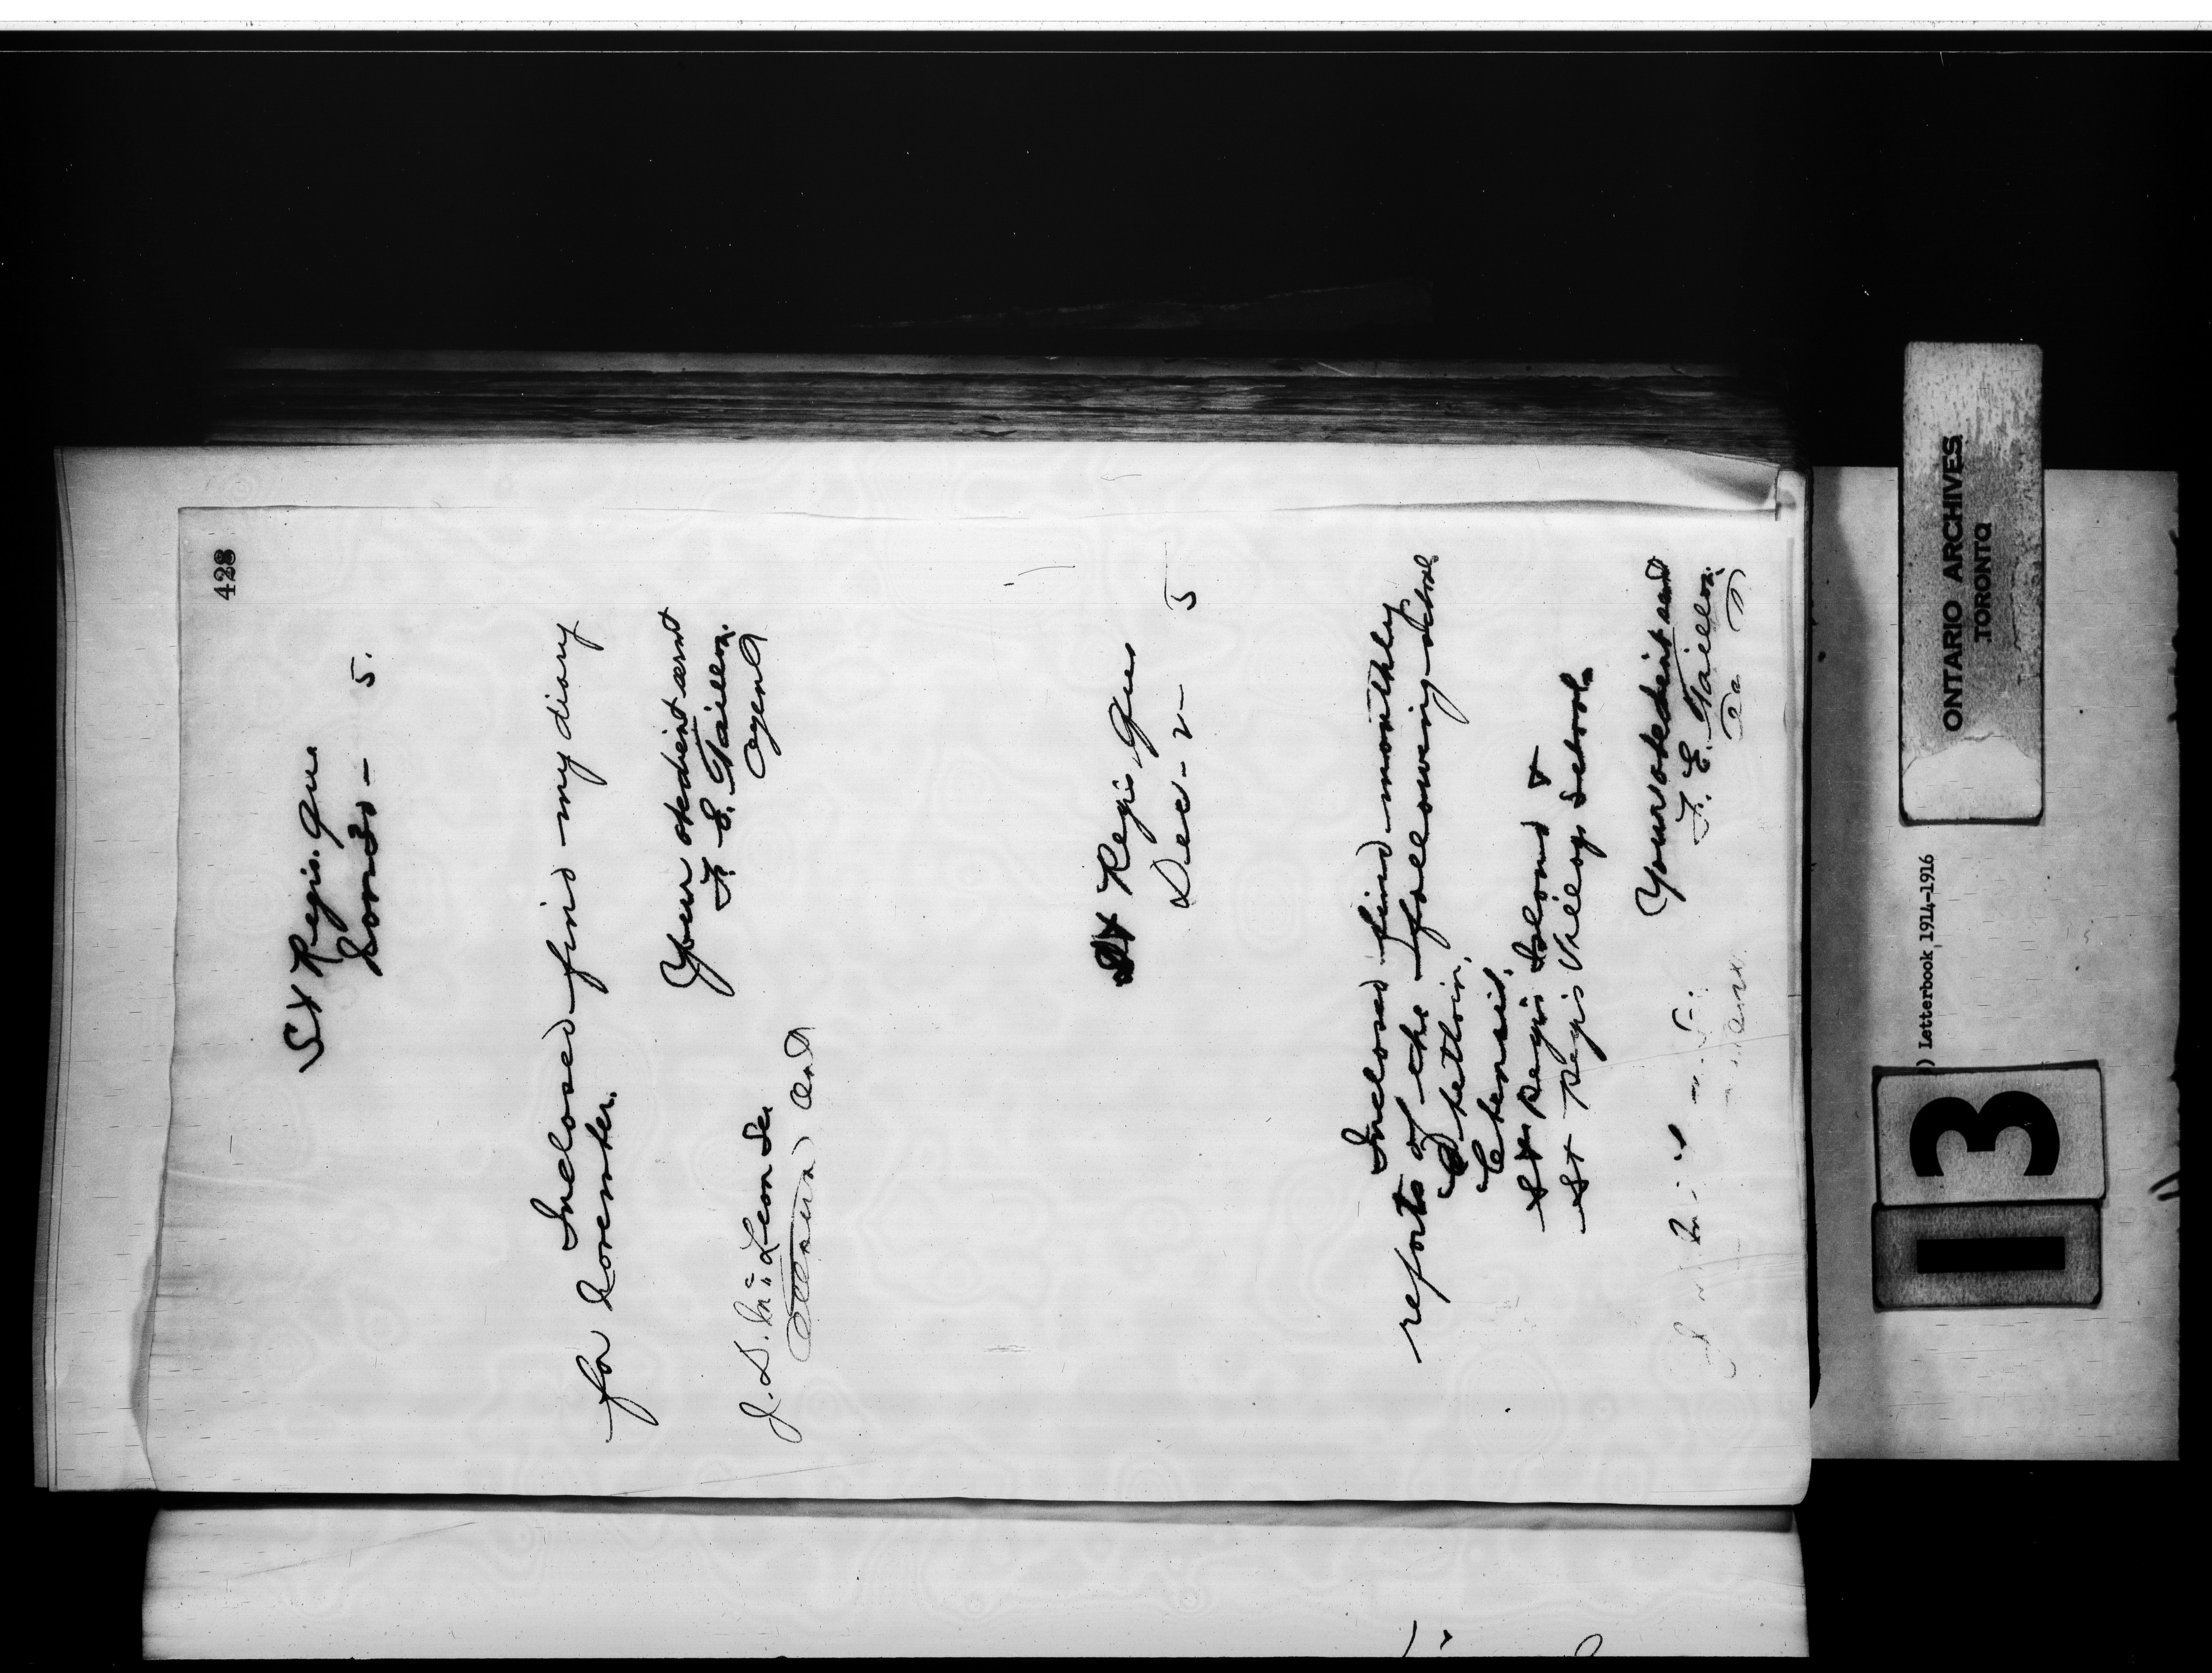 428
St Regis. Que
Nov 30 - 5.
Inclosed find my diary
for November.
Your obedient servt
F. E. Taillon.
Agent
J. D. McLean Sec
Ottawa Ont
St Regis, Que
Dec - 2 - 5
Inclosed find monthly
reports of the following schools
Chenail,
St Regis Island &
St Regis Village School.
Your obedient servt
F. E. Taillon.
Ont.
ONTARIO ARCHIVES
TORONTO
) Letterbook 1914-1916
13